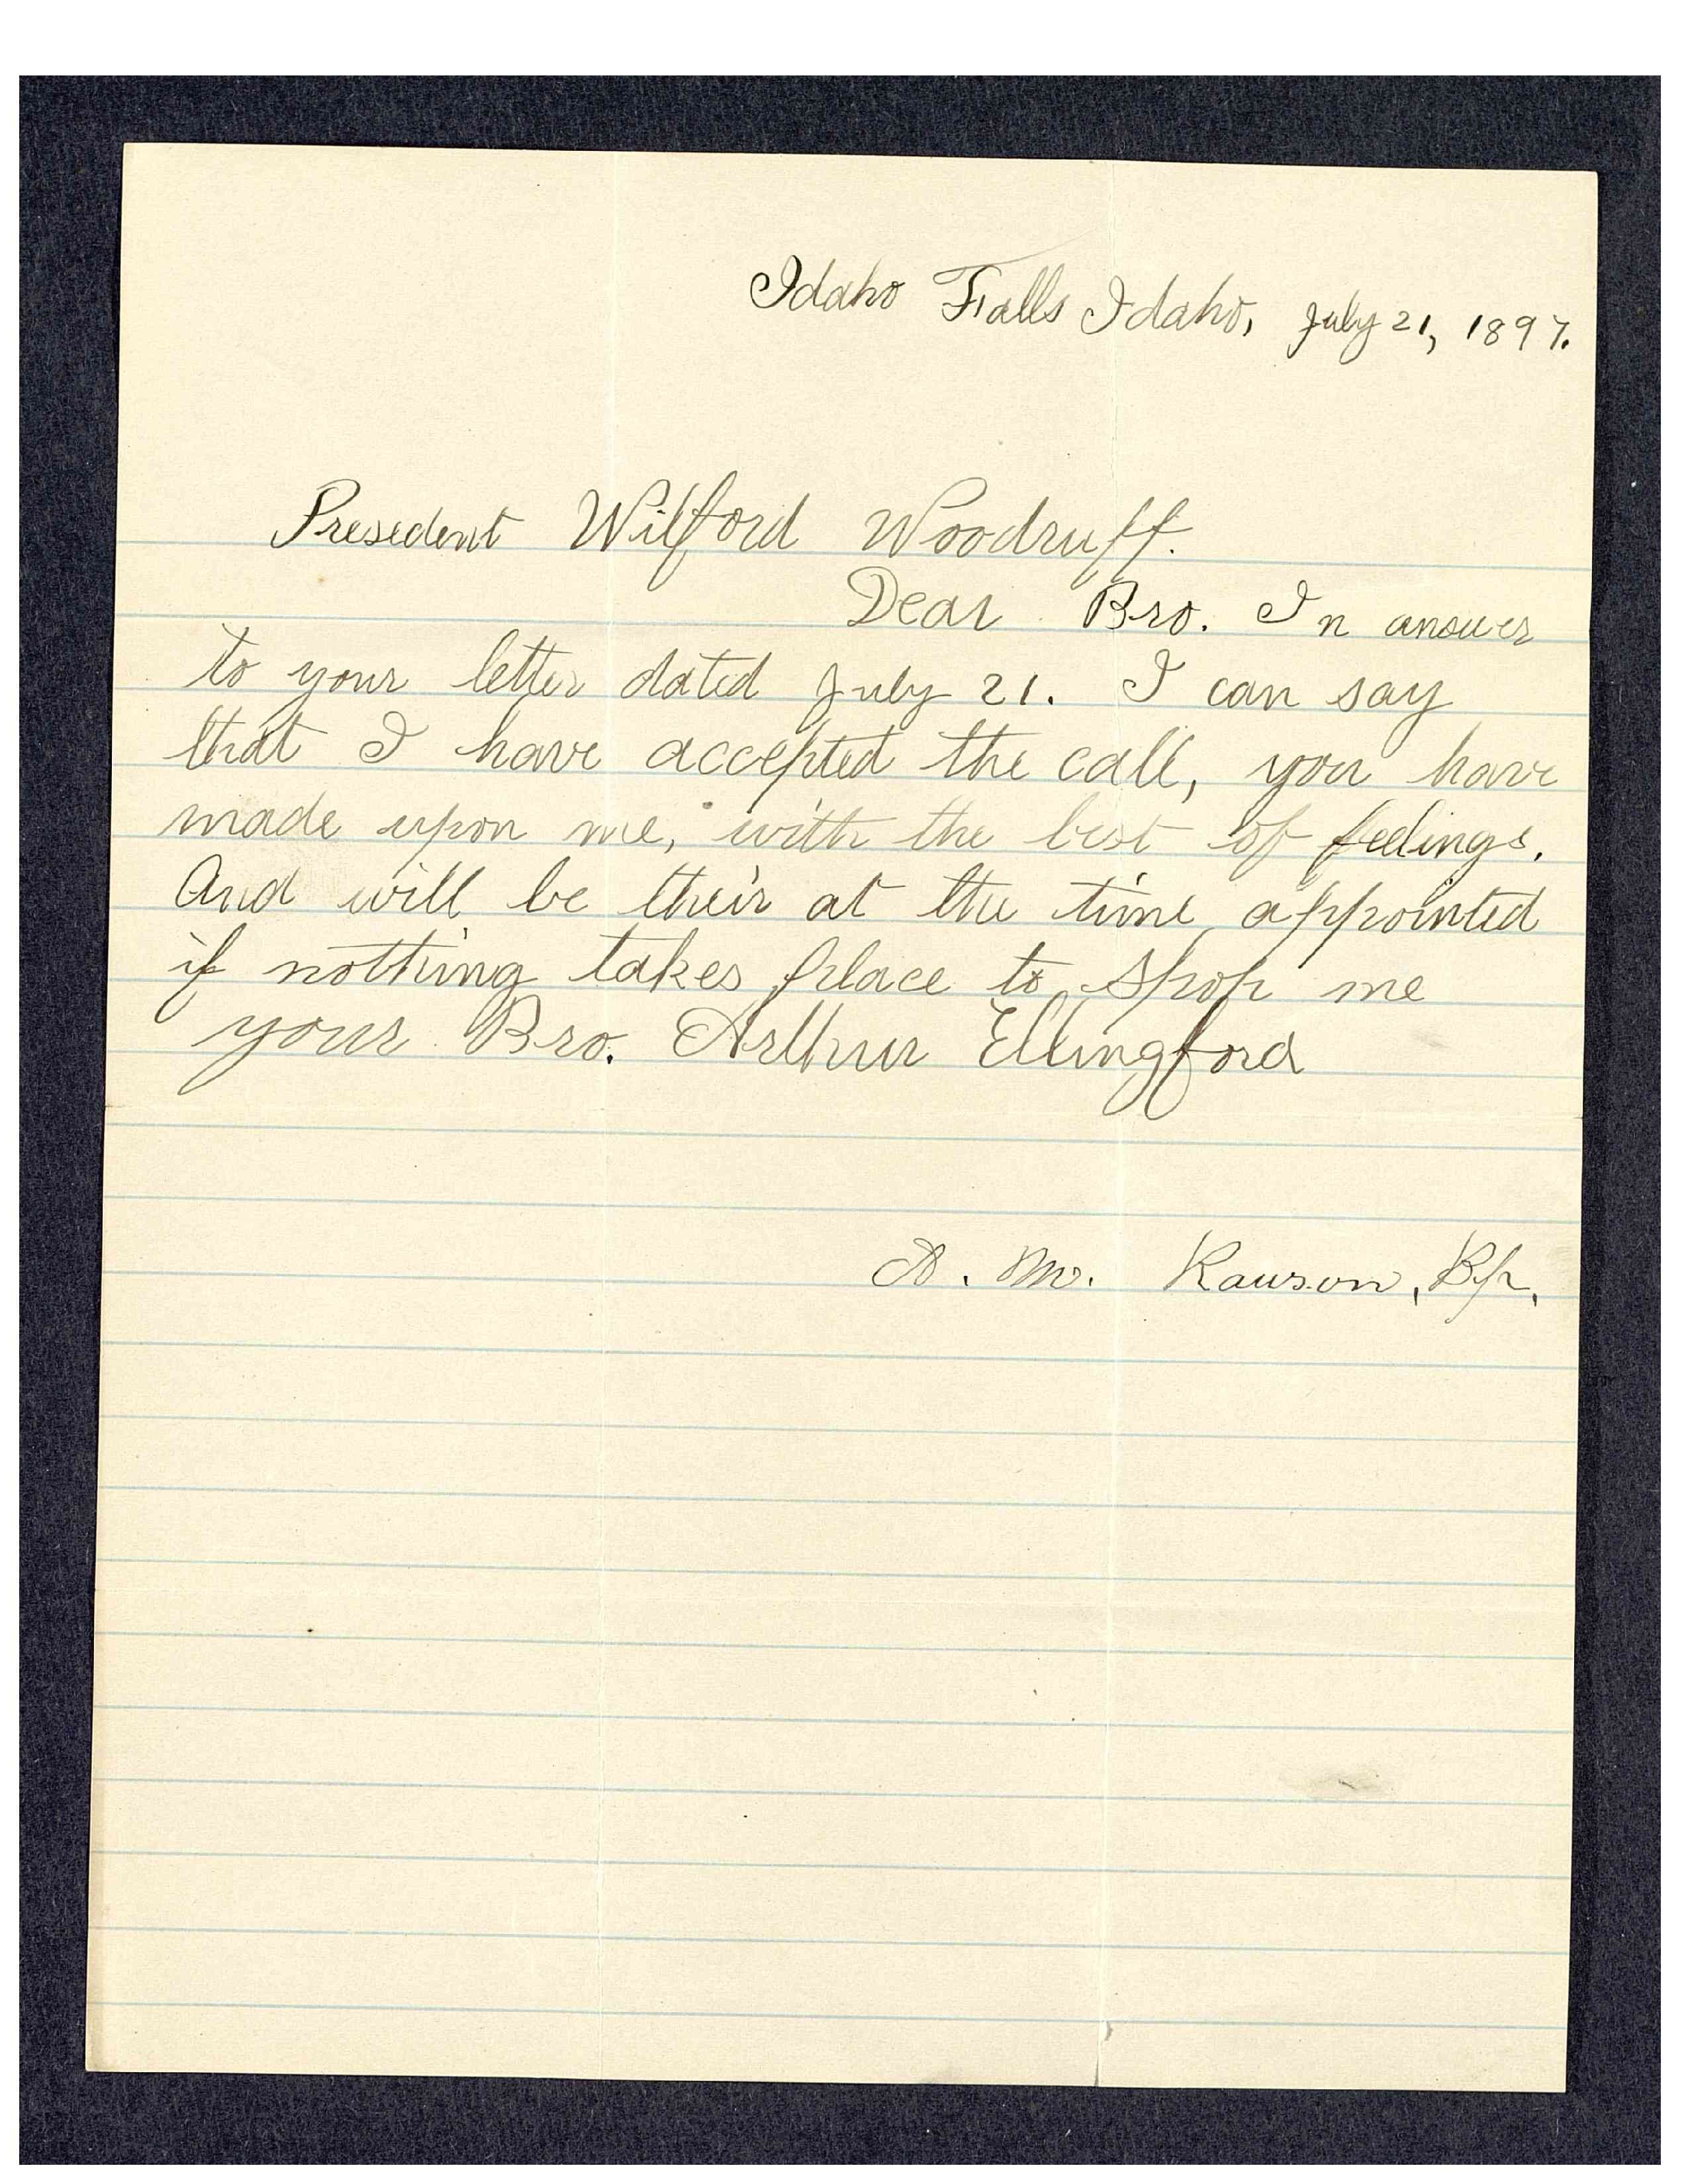 Idaho Falls Idaho, July 21, 1897.
Presedent Wilford Woodruff.
Dear Bro. In answer
to your letter dated July 21. I can say
that I have accepted the call, you have
made upon me, with the best of feelings.
And will be their at the time appointed
if nothing takes place to spop me
your Bro. Arthur Ellingford
A. M. Rawson, Bp.